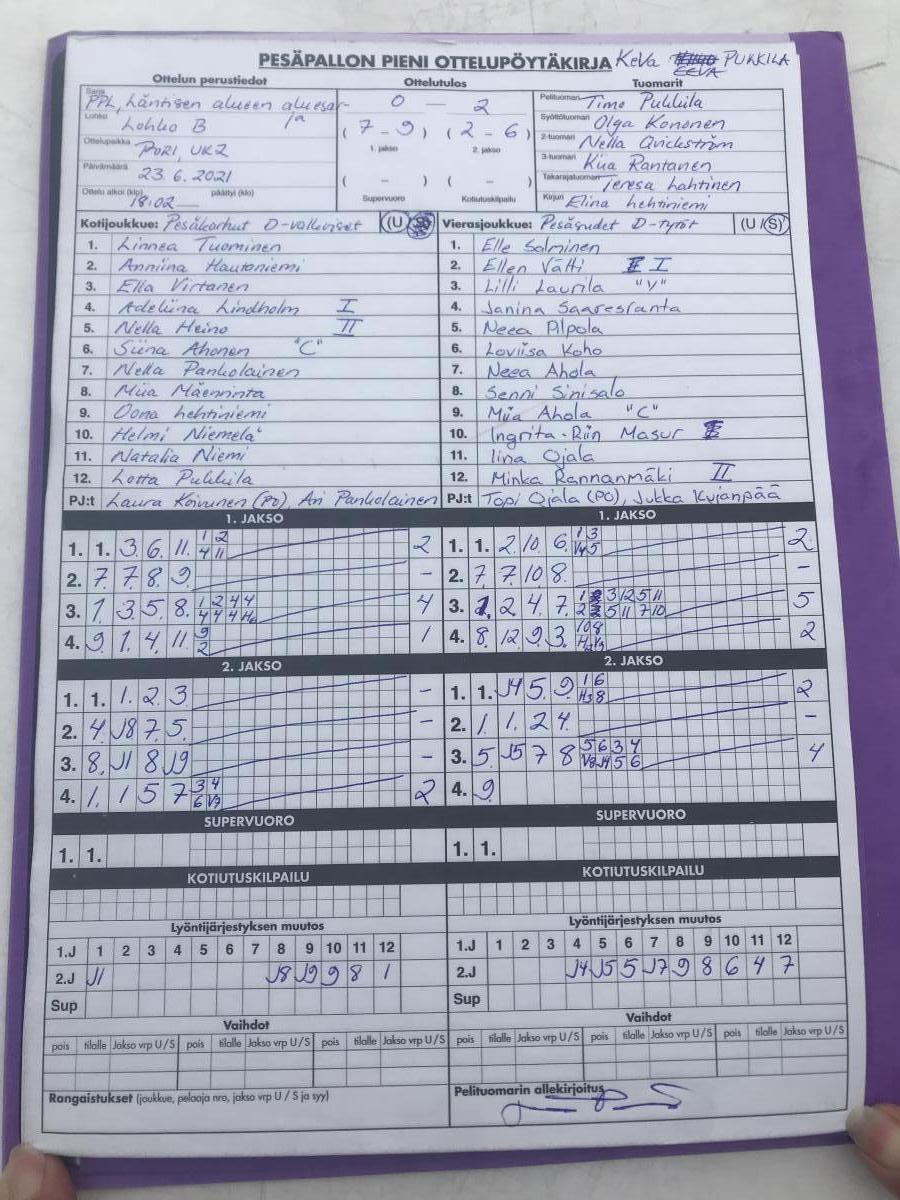 PESÄPALLON PIENI OTTELUPÖYTÄKIRJA KeVa EEVA PUKKILA
Ottelun perustiedot Ottelutulos Tuomarit
Sarja PPL, Läntisen alueen aluesarja
0 — 2
Pelituomari Timo Pukkila
Lohko Lohko B
(7 - 9) (2 - 6)
1. jakso 2. jakso
Syöttötuomari Olga Kononen
Ottelupaikka PORI, UK2
2-tuomari Nella Qvickström
Päivämäärä 23.6.2021
3-tuomari Kiia Rantanen
( - ) ( - )
Supervuoro Kotiutuskilpailu
Takarajatuomari Teresa Lahtinen
Ottelu alkoi (klo) 18:02 päättyi (klo)
Kirjuri Elina Lehtiniemi
Kotijoukkue: Pesäkarhut D-valkoiset (U
Vierasjoukkue: Pesäsudet D-tytöt (U / S)
1. Linnea Tuominen
1. Elle Salminen
2. Anniina Hautaniemi
2. Ellen Vätti I
3. Ella Virtanen
3. Lilli Laurila "V"
4. Adeliina Lindholm I
4. Janina Saaresranta
5. Nella Heino II
5. Neea Pilpola
6. Siina Ahonen "C"
6. Loviisa Koho
7. Nella Pankolainen
7. Neea Ahola
8. Miia Mäenrinta
8. Senni Sinisalo
9. Oona Lehtiniemi
9. Miia Ahola "C"
10. Helmi Niemelä
10. Ingrita-Riin Masur
11. Natalia Niemi
11. Iina Ojala
12. Lotta Pukkila
12. Minka Rannanmäki II
PJ:t Laura Koivunen (PO), Ari Pankolainen
PJ:t Topi Ojala (PO), Jukka Kujanpää
1. JAKSO 1. JAKSO
1. 1. 3. 6. 11. 1 2 4 11 2
1. 1. 2. 10. 6. 1 3 V4 5 2
2. 7. 7. 8. 9. –
2. 7. 7. 10. 8. –
3. 1. 3. 5. 8. 1 2 4 4 4 4 4 4
3. 2 4. 7. 5
4. 9. 1. 4. 11 9 2 1
4. 8. 12. 9. 3. 10 8 2
2. JAKSO 2. JAKSO
1. 1. 1. 2. 3 –
1. 1. J4 5. 9. 1 6 H3 8 2
2. 4. J8 7. 5. –
2. 1. 1. 2 4. –
3. 8. J1 8 J9 –
3. 5. J5 7 8 5 6 3 4 V8 J4 5 6 4
4. 1. 1 5 7 3 4 6 V7 2
4. 9.
SUPERVUORO SUPERVUORO
1. 1.
1. 1.
KOTIUTUSKILPAILU KOTIUTUSKILPAILU
Lyöntijärjestyksen muutos Lyöntijärjestyksen muutos
1.J 1 2 3 4 5 6 7 8 9 10 11 12
1.J 1 2 3 4 5 6 7 8 9 10 11 12
2.J J1 J8 J9 9 8 1
2.J J4 J5 5 J7 9 8 6 4 7
Sup
Sup
Vaihdot Vaihdot
pois tilalle Jakso vrp U/S pois tilalle Jakso vrp U/S pois tilalle Jakso vrp U/S
pois tilalle Jakso vrp U/S pois tilalle Jakso vrp U/S pois tilalle Jakso vrp U/S
Rangaistukset (joukkue, pelaaja nro, jakso vrp U / S ja syy)
Pelituomarin allekirjoitus